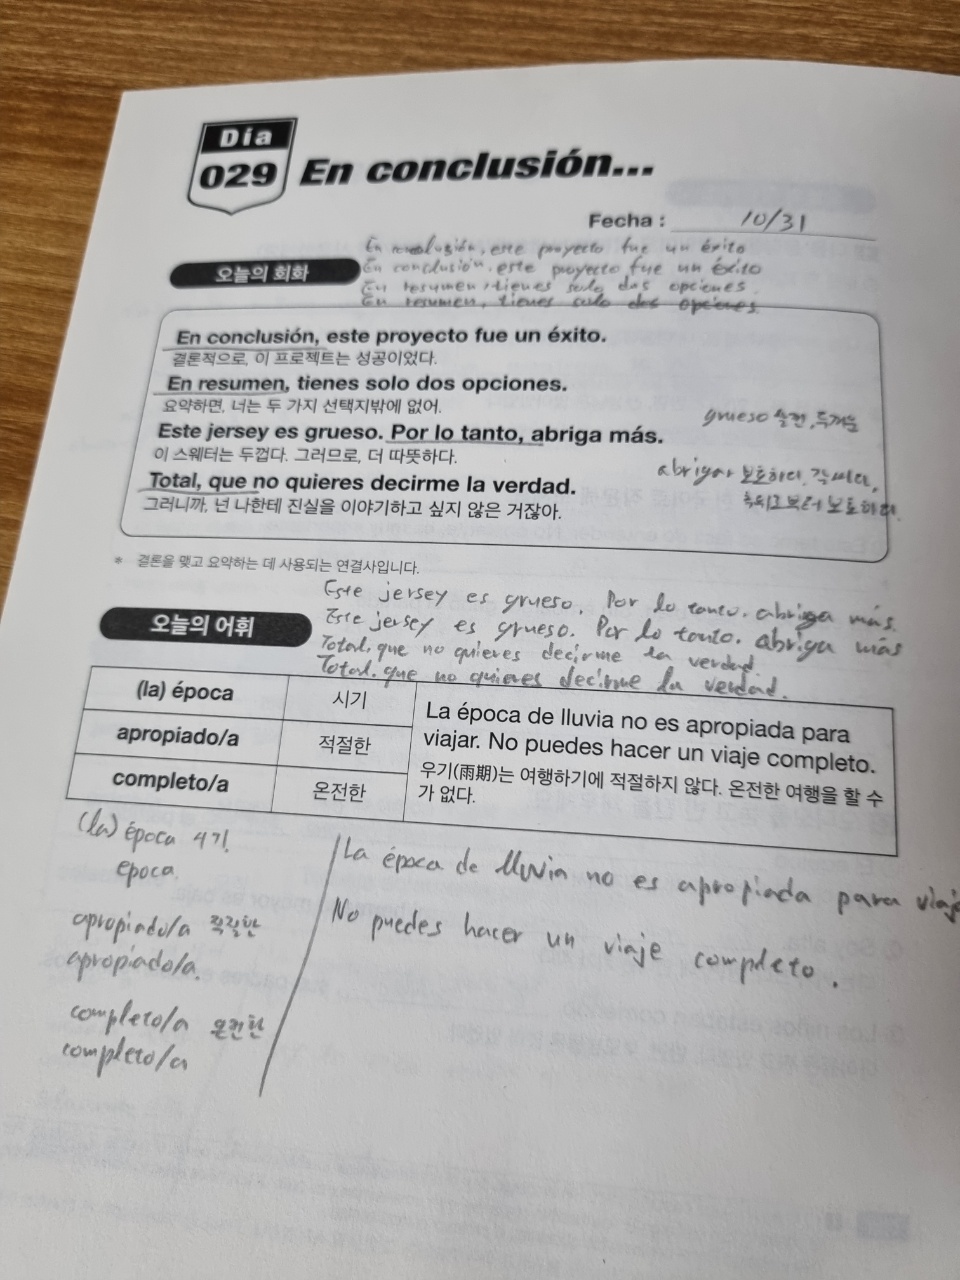 Día
029
En conclusión...
Fecha : 10/31
En conclusión, este proyecto fue un éxito
En conclusión, este proyecto fue un éxito
En resumen, tienes solo dos opciones.
En resumen, tienes solo dos opciones.
오늘의 회화
En conclusión, este proyecto fue un éxito.
결론적으로, 이 프로젝트는 성공이었다.
En resumen, tienes solo dos opciones.
요약하면, 너는 두 가지 선택지밖에 없어.
grueso 굵은, 두꺼운
Este jersey es grueso. Por lo tanto, abriga más.
이 스웨터는 두껍다. 그러므로, 더 따뜻하다.
abrigar 보호하다, 감싸다,
추위로부터 보호하다.
Total, que no quieres decirme la verdad.
그러니까, 넌 나한테 진실을 이야기하고 싶지 않은 거잖아.
* 결론을 맺고 요약하는 데 사용되는 연결사입니다.
Este jersey es grueso. Por lo tanto, abriga más.
Este jersey es grueso. Por lo tanto, abriga más
Total, que no quieres decirme la verdad
Total, que no quieres decirme la verdad.
오늘의 어휘
(la) época 시기
apropiado/a 적절한
completo/a 온전한
La época de lluvia no es apropiada para
viajar. No puedes hacer un viaje completo.
우기(雨期)는 여행하기에 적절하지 않다. 온전한 여행을 할 수
가 없다.
(la) época 시기
época.
apropiado/a 적절한
apropiado/a.
completo/a 온전한
completo/a
La época de lluvia no es apropiada para viaj
No puedes hacer un viaje completo.